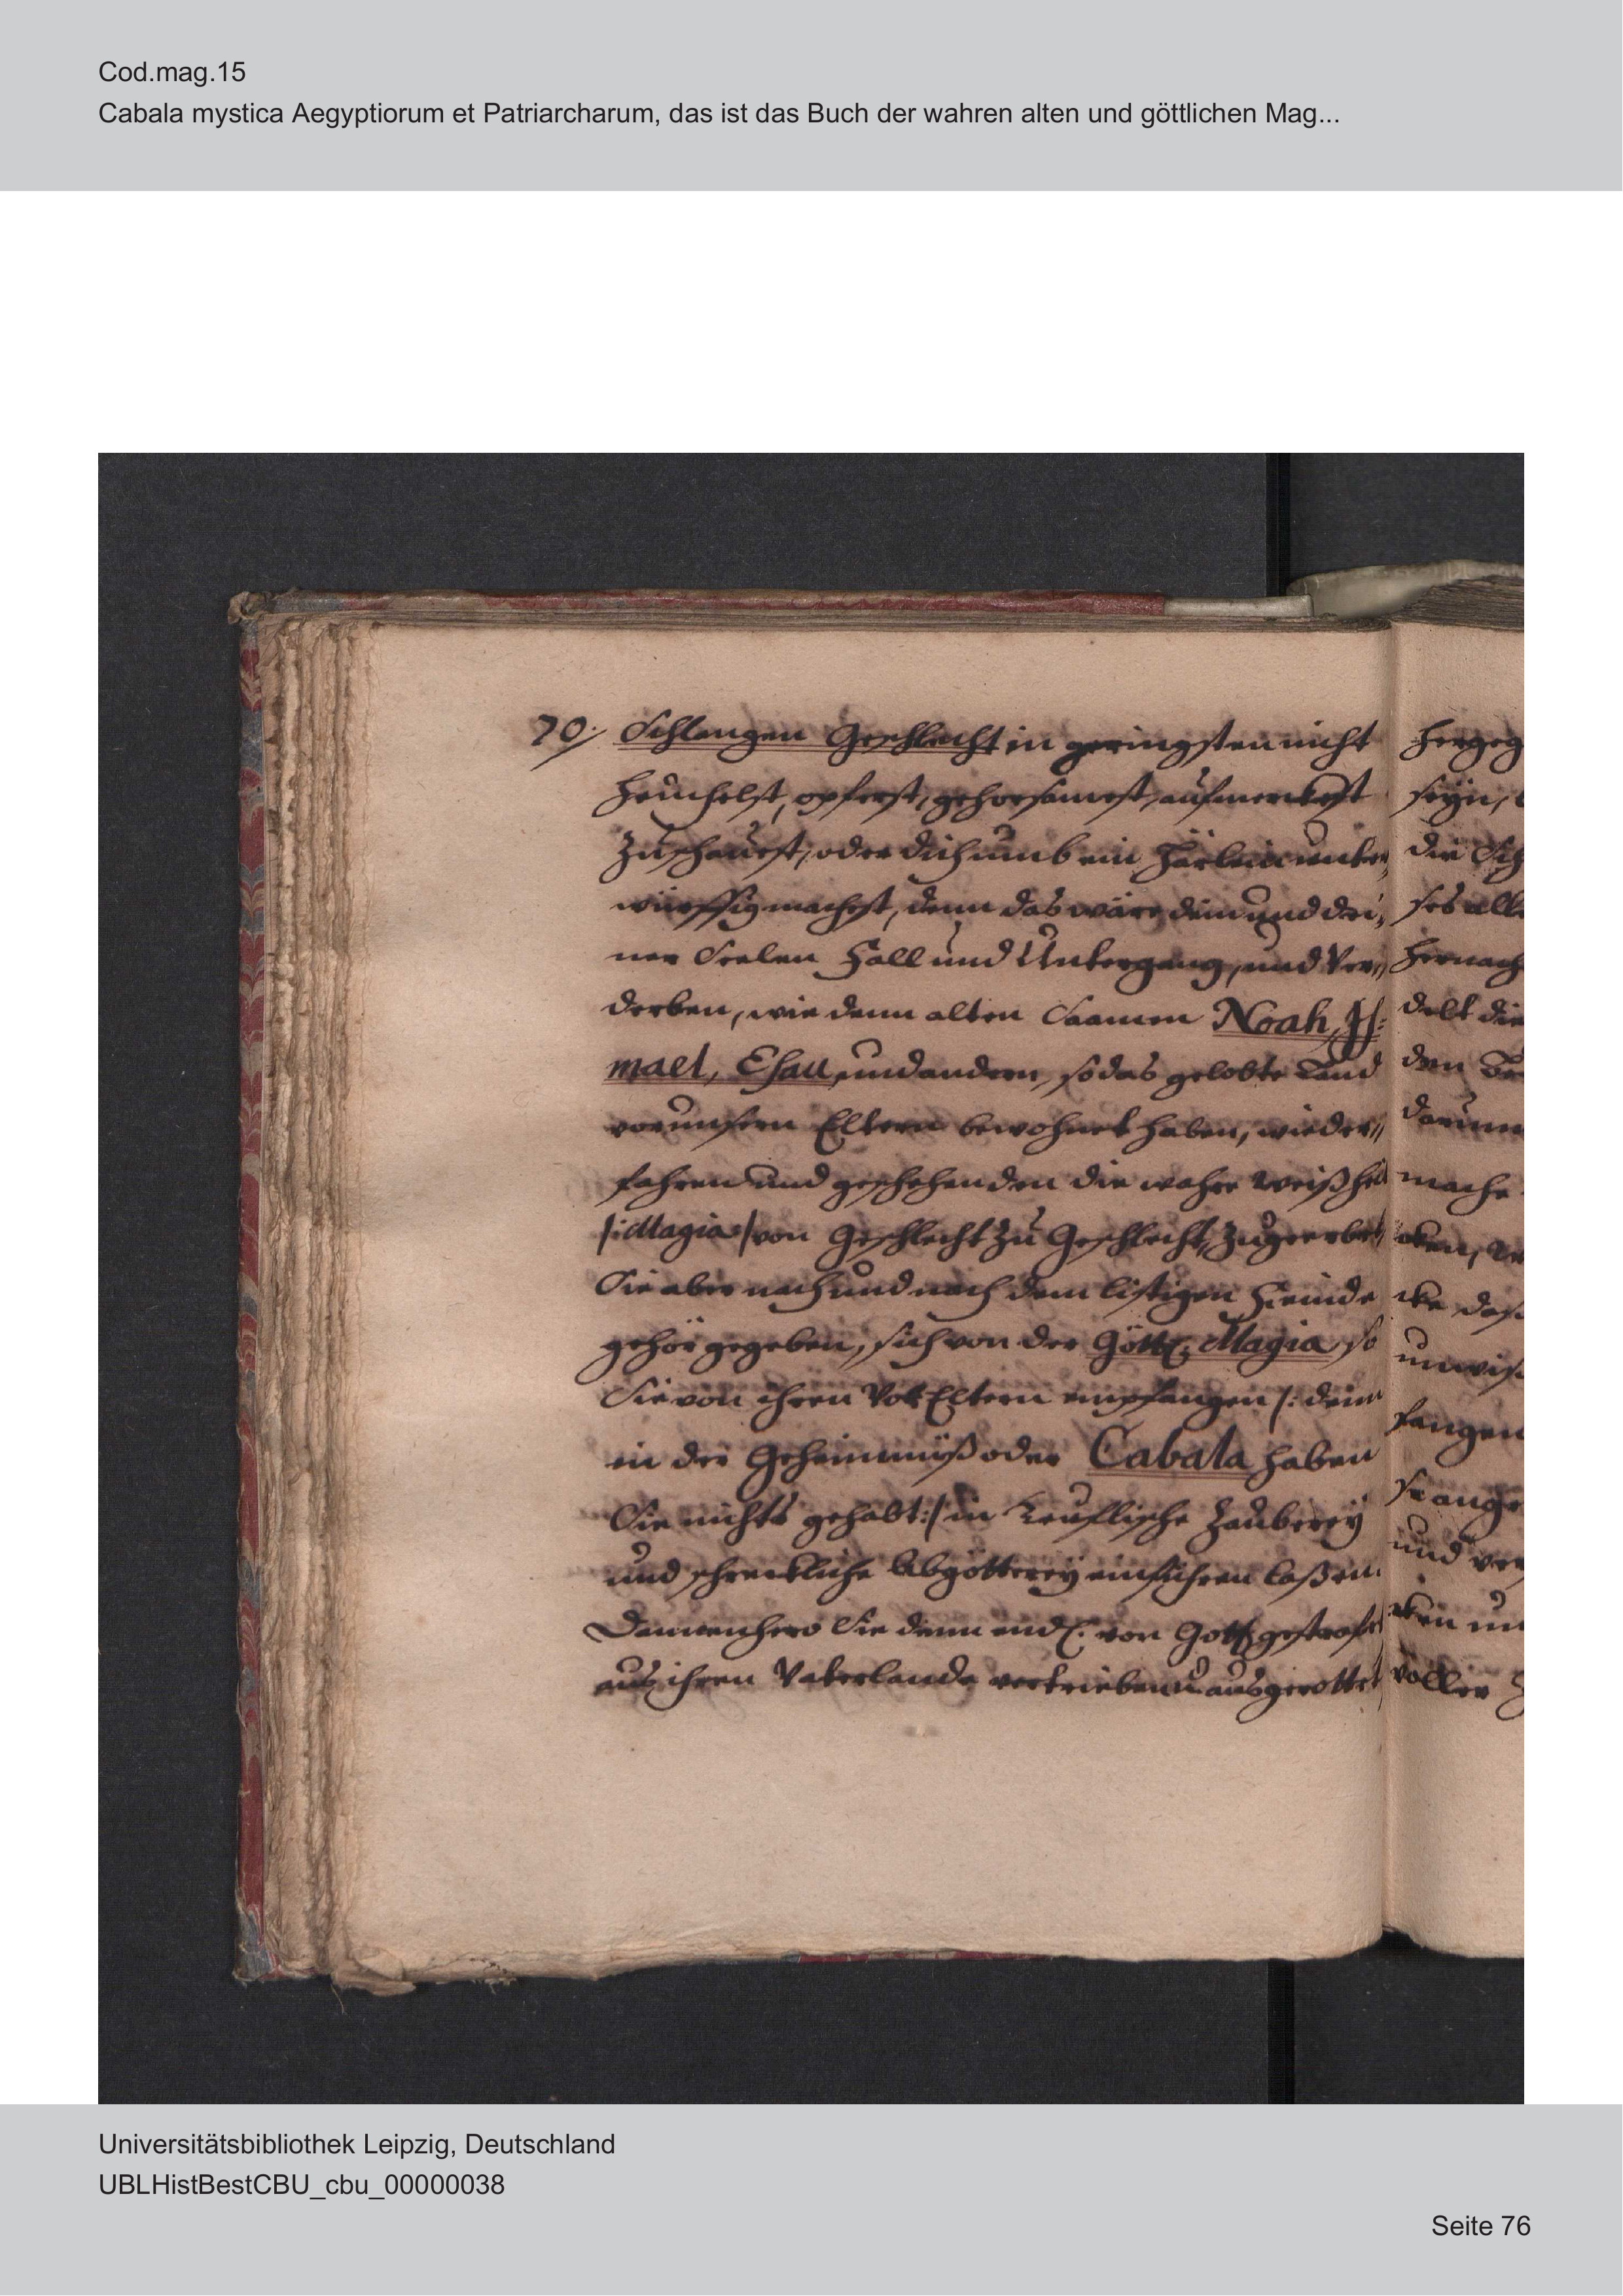 Cod.mag.15
Cabala mystica Aegyptiorum et Patriarcharum, das ist das Buch der wahren alten und göttlichen Mag...
70. Schlangen Geschlecht in geringsten nicht
heuchelst, opferst, gehorsamest, aufmerckest
zuschauest, oder dich umb ein Härlein unter,
würffig machest, denn das wäre dein und dei,
ner Seelen Fall und Untergang, und Ver,,
derben, wie denn alten Saamen Noah, Is:
mael, Esau, und andern, so das gelobte Land
vor unsern Eltern bewohnet haben, wieder,,
fahren und geschehen den die wahre Weißheit
/: Magia :/ von Geschlecht zu Geschlecht, zugeerbet
Sie aber nach und nach dem listigen Feinde
gehör gegeben, sich von der Göttl. Magia so
Sie von ihren VorEltern empfangen /: denn
in der Geheimnüß oder Cabala haben
Sie nichts gehabt :/ in Teuflische Zauberey
und schreckliche Abgötterey einführen laßen.
Dannenhero Sie denn endl. von Gott gestraft
aus ihren Vaterlande vertrieben u. ausgerottet
hergeg
seyn,
die Sch
ses alle
hernach
delt die
den
darum
mache
unwiß
fangen
und ver
voller
Universitätsbibliothek Leipzig, Deutschland
UBLHistBestCBU_cbu_00000038
Seite 76